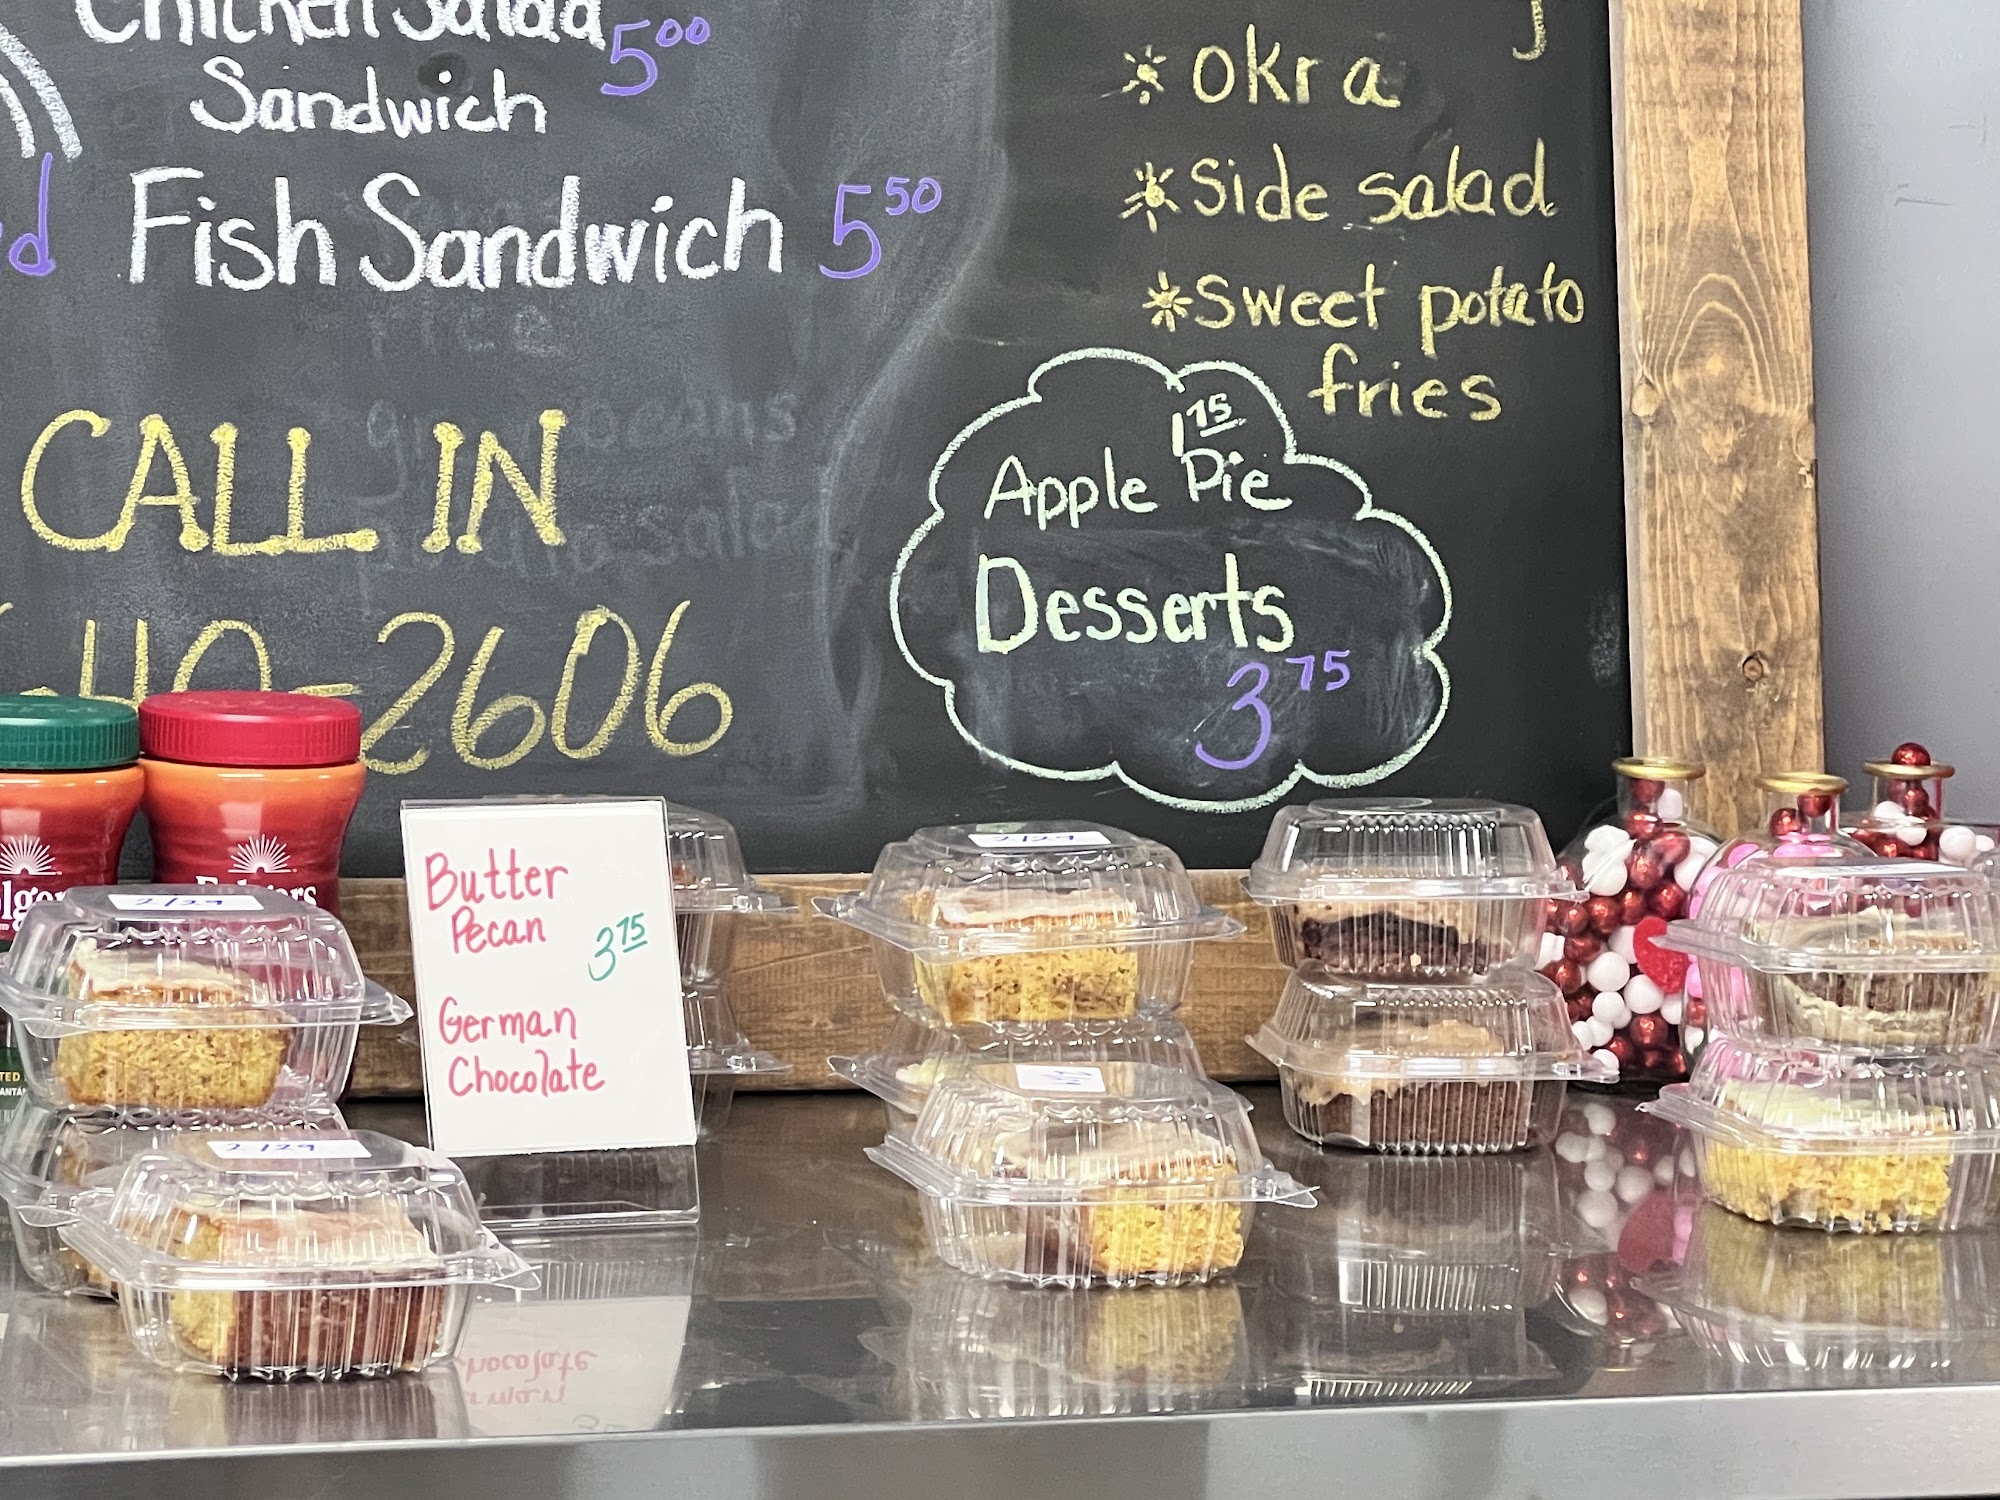 Chicken Salad 5.00
Sandwich
Fish Sandwich 5.50
d
CALL IN
40-2606
* Okra
* Side salad
* Sweet potato
fries
1.75
Apple Pie
Desserts
3.75
Folgers
2/29
2/29
2/29
Butter
Pecan
3.75
German
Chocolate